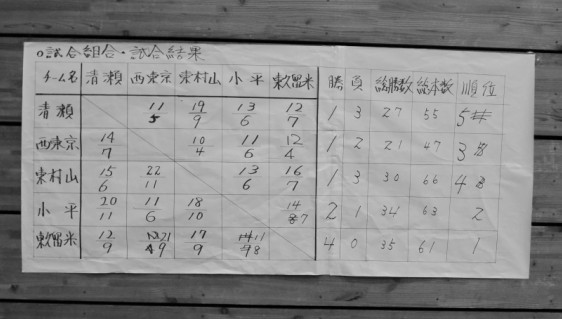 o試合組合・試合結果
チーム名 清瀬 西東京 東村山 小平 東久留米 勝 負 総勝数 総本数 順位
清瀬 11/5 19/9 13/6 12/7 1 3 27 55 5
西東京 14/7 10/4 11/6 12/4 1 2 21 47 3
東村山 15/6 22/11 13/6 16/7 1 3 30 66 4
小平 20/11 11/6 18/10 14/7 2 1 34 63 2
東久留米 12/9 21/9 17/9 11/8 4 0 35 61 1